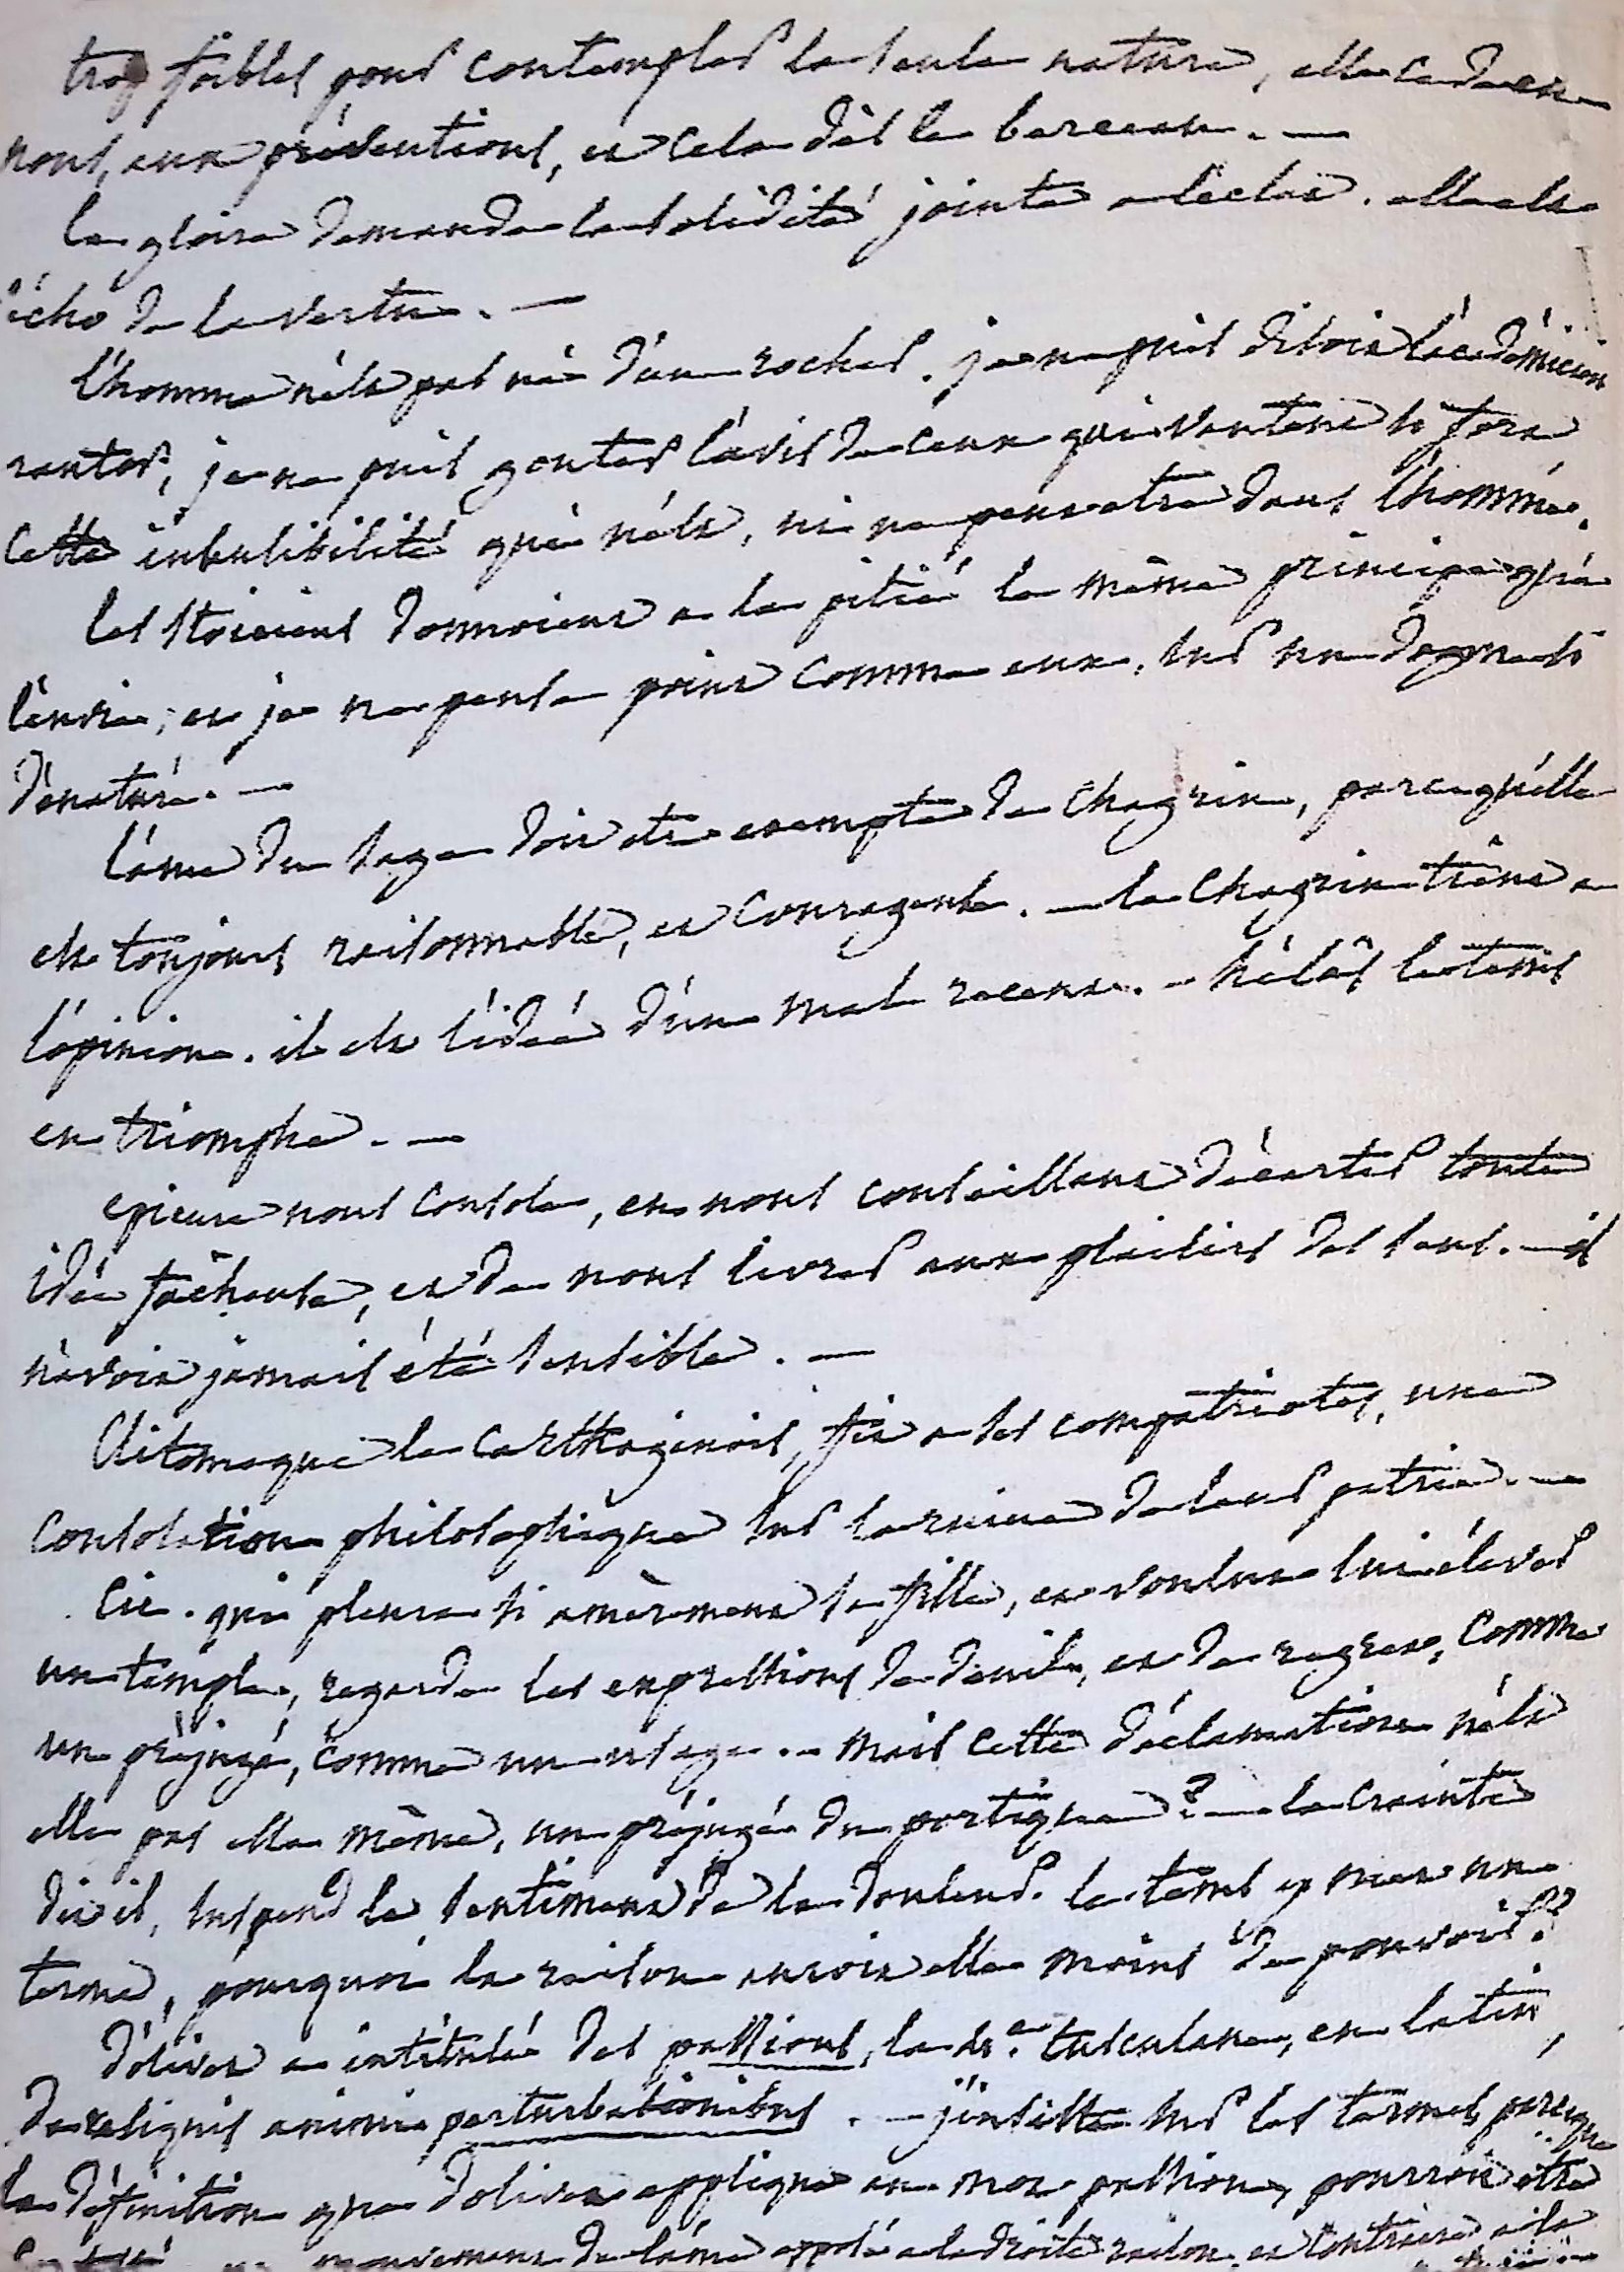 trop foibles pour contempler la seule nature, elle cede en
nous, aux préventions, et cela dès le berceau. —
la gloire demande la solidité jointe a l'eclat. elle est
l'écho de la vertu. —
l'homme n'est pas né d'un rocher. je ne puis disoit l'académicien
rantor, je ne puis gouter l'avis de ceux qui vantent si fort
cette insensibilité qui n'est, ni ne peut etre dans l'homme.
les stoiciens donnoient a la pitié le même principe qu'a
l'envie, et je ne pense point comme eux, sur un dogme si
dénaturé. —
l'ame du sage doit etre exempte de chagrin, parce qu'elle
est toujours raisonnable, et courageuse. — le chagrin tient a
l'opinion. il est l'idée d'un mal recent. — hélas le tems
en triomphe. —
epicure nous console, en nous conseillant d'écarter toute
idée fâcheuse, et de nous livrer aux plaisirs des sens. — il
n'avoit jamais été sensible. —
Clitomaque le Carthaginois, fit a ses compatriotes, une
consolation philosophique sur la ruine de leur patrie. —
Cic. qui pleura si amèrement sa fille, et voulut lui élever
un temple, regarde les expressions de deuil, et de regret, comme
un préjugé, comme un usage. — mais cette déclamation n'est
elle pas elle même, un préjugé du portique? — la crainte
dit il, suspend le sentiment de la douleur. le tems y met un
terme, pourquoi la raison auroit elle moins de pouvoir?
d'olivet a intitulé des passions, la 4e. tusculane, en latin,
de reliquis animi perturbationibus. — j'insiste sur les termes, parceque
la définition que d'olivet applique au mot passion, pourroit etre
mouvement de l'ame opposé a la droite raison, et contraire a la